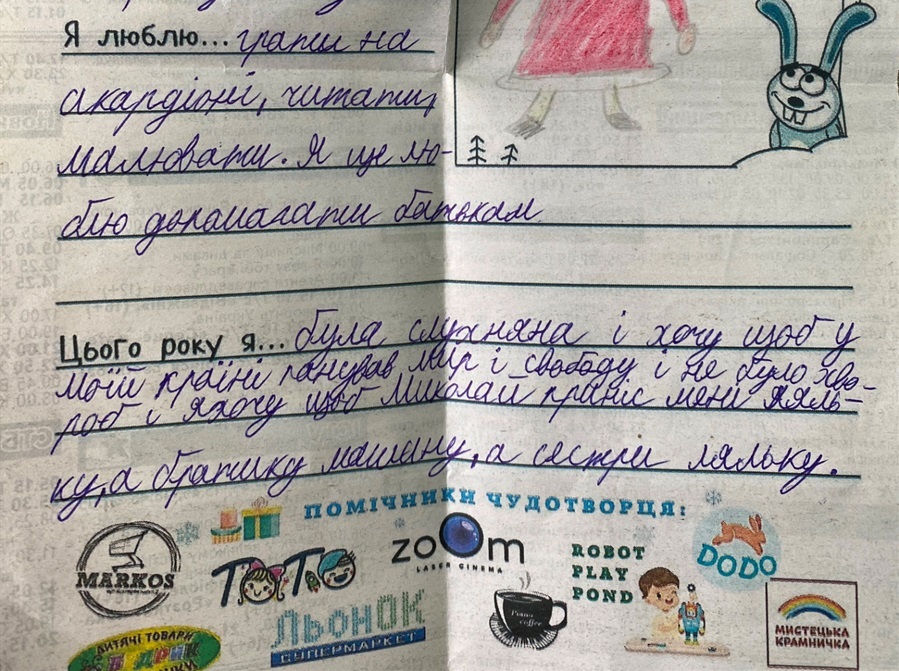 Я люблю... грати на
акардіоні, читати,
малювати. Я ще лю-
блю допомагати батькам
Цього року я... була слухняна і хочу щоб у
моїй країні панував мир і свободу і не було хво-
роб і яхочу щоб Миколай приніс мені ляль-
ку, а братику машину, а сестри ляльку.
ПОМІЧНИКИ ЧУДОТВОРЦЯ:
MARKOS
ТОТО
ZOOM
LASER CINEMA
ROBOT
PLAY
POND
DODO
ЛЬОНОК
СУПЕРМАРКЕТ
Piana
coffee
МИСТЕЦЬКА
КРАМНИЧКА
ДИТЯЧІ ТОВАРИ